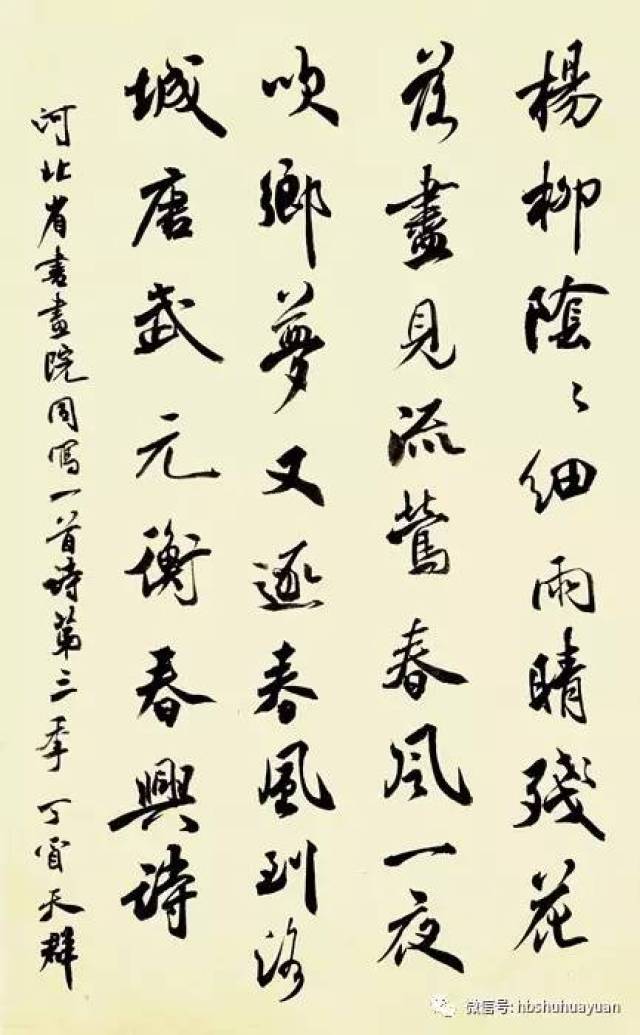 楊柳陰〻細雨晴殘花
落盡見流鶯春風一夜
吹鄉夢又逐春風到洛
城唐武元衡春興詩
河北省書畫院同寫一首詩第三季丁酉天群
微信号: hbshuhuayuan